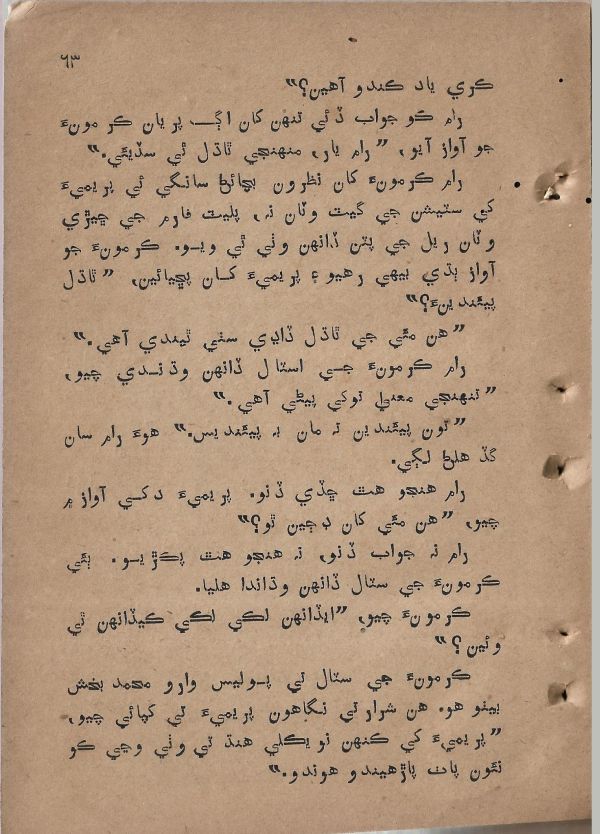 ٦٣
ڪري ياد ڪندو آهين؟“
رام ڪو جواب ڏئي تنهن کان اڳ، پريان ڪرمونءَ
جو آواز آيو، ”رام يار، منهنجي ٿاڌل ئي سڏيئي.“
رام ڪرمونءَ کان نظرون بچائڻ سانگي ئي پريميءَ
کي سٽيشن جي گيٽ وٽان نه، پليٽ فارم جي ڇيڙي
وٽان ريل جي پٽن ڏانهن وٺي ئي ويو. ڪرمونءَ جو
آواز ٻڌي بيهي رهيو ۽ پريميءَ کان پڇيائين، ”ٿاڌل
پيئندينءَ؟“
”هن مئي جي ٿاڌل ڏاڍي سٺي ٿيندي آهي.“
رام ڪرمونءَ جي اسٽال ڏانهن وڌندي چيو،
”تنهنجي معنيٰ توکي پيئڻي آهي.“
”تون پيئندين ته مان به پيئنديس.“ هوءَ رام سان
گڏ هلڻ لڳي.
رام هنجو هٿ ڇڏي ڏنو. پريميءَ دکي آواز ۾
چيو، ”هن مئي کان ڊڄين ٿو؟“
رام نه جواب ڏنو، نه هنجو هٿ پڪڙيو. ٻئي
ڪرمونءَ جي سٽال ڏانهن وڌاندا هليا.
ڪرمونءَ چيو، ”ايڏانهن لڪي لڪي ڪيڏانهن ٿي
وئين؟“
ڪرمونءَ جي سٽال تي پوليس وارو محمد بخش
بيٺو هو. هن شرارتي نگاهون پريميءَ تي کپائي چيو،
”پريميءَ کي ڪنهن نويڪلي هنڌ تي وٺي وڃي ڪو
نئون پاٺ پاڙهيندو هوندو.“